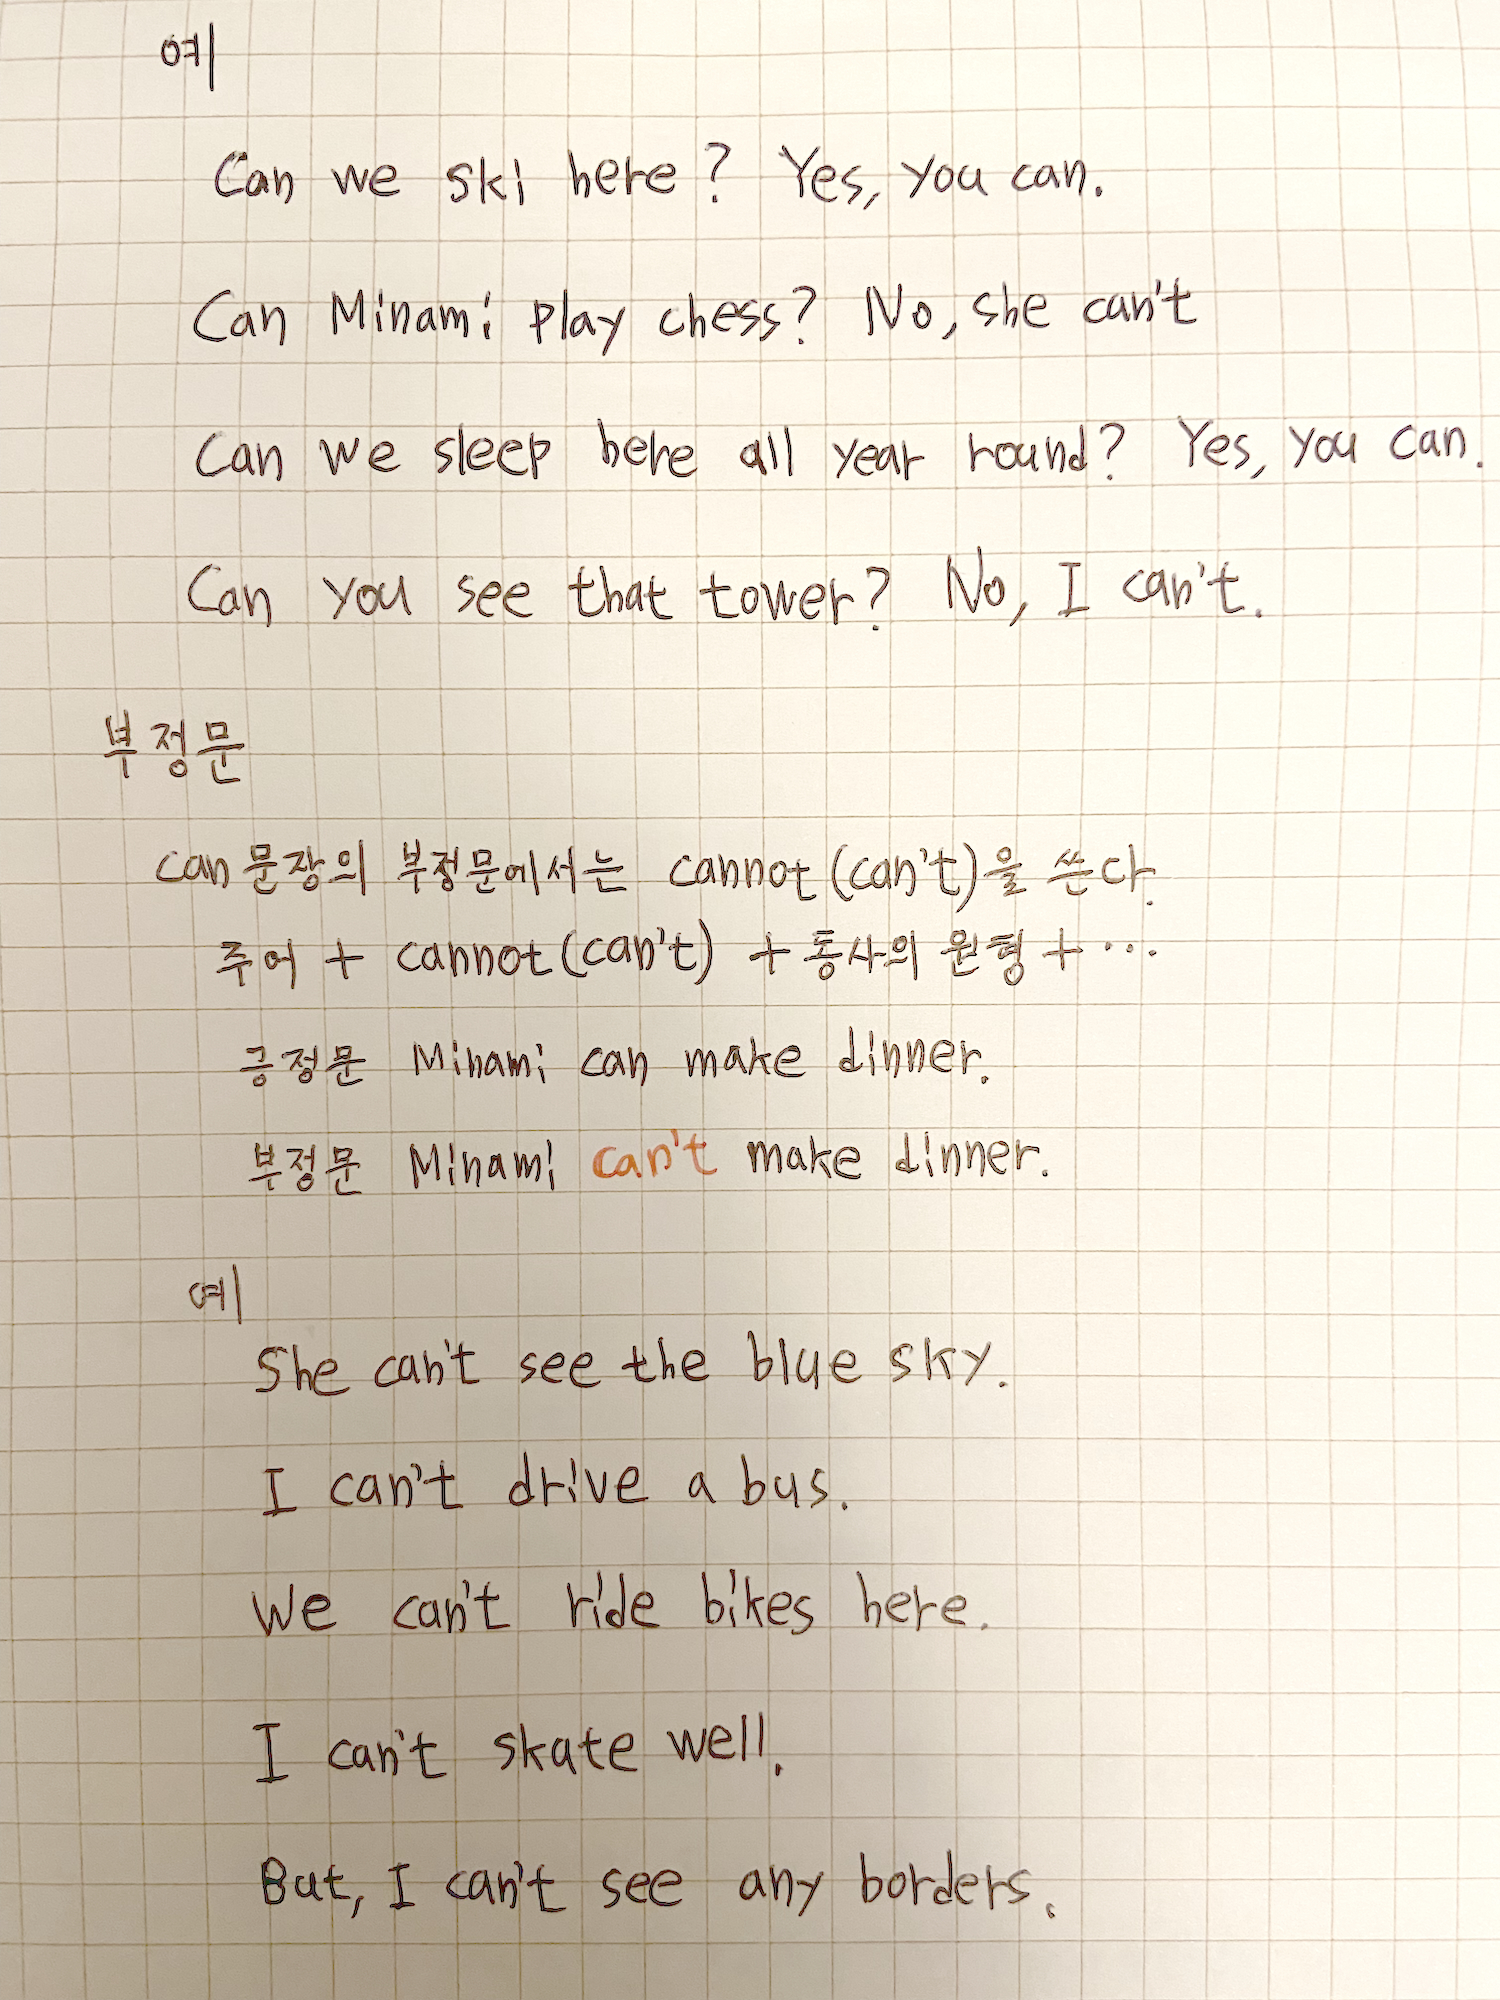 예
Can we ski here? Yes, you can.
Can Minami play chess? No, she can't
Can we sleep here all year round? Yes, you can.
Can you see that tower? No, I can't.
부정문
can 문장의 부정문에서는 cannot (can't)을 쓴다.
주어 + cannot (can't) + 동사의 원형 + ...
긍정문 Minami can make dinner.
부정문 Minami can't make dinner.
예
She can't see the blue sky.
I can't drive a bus.
We can't ride bikes here.
I can't skate well.
But, I can't see any borders.